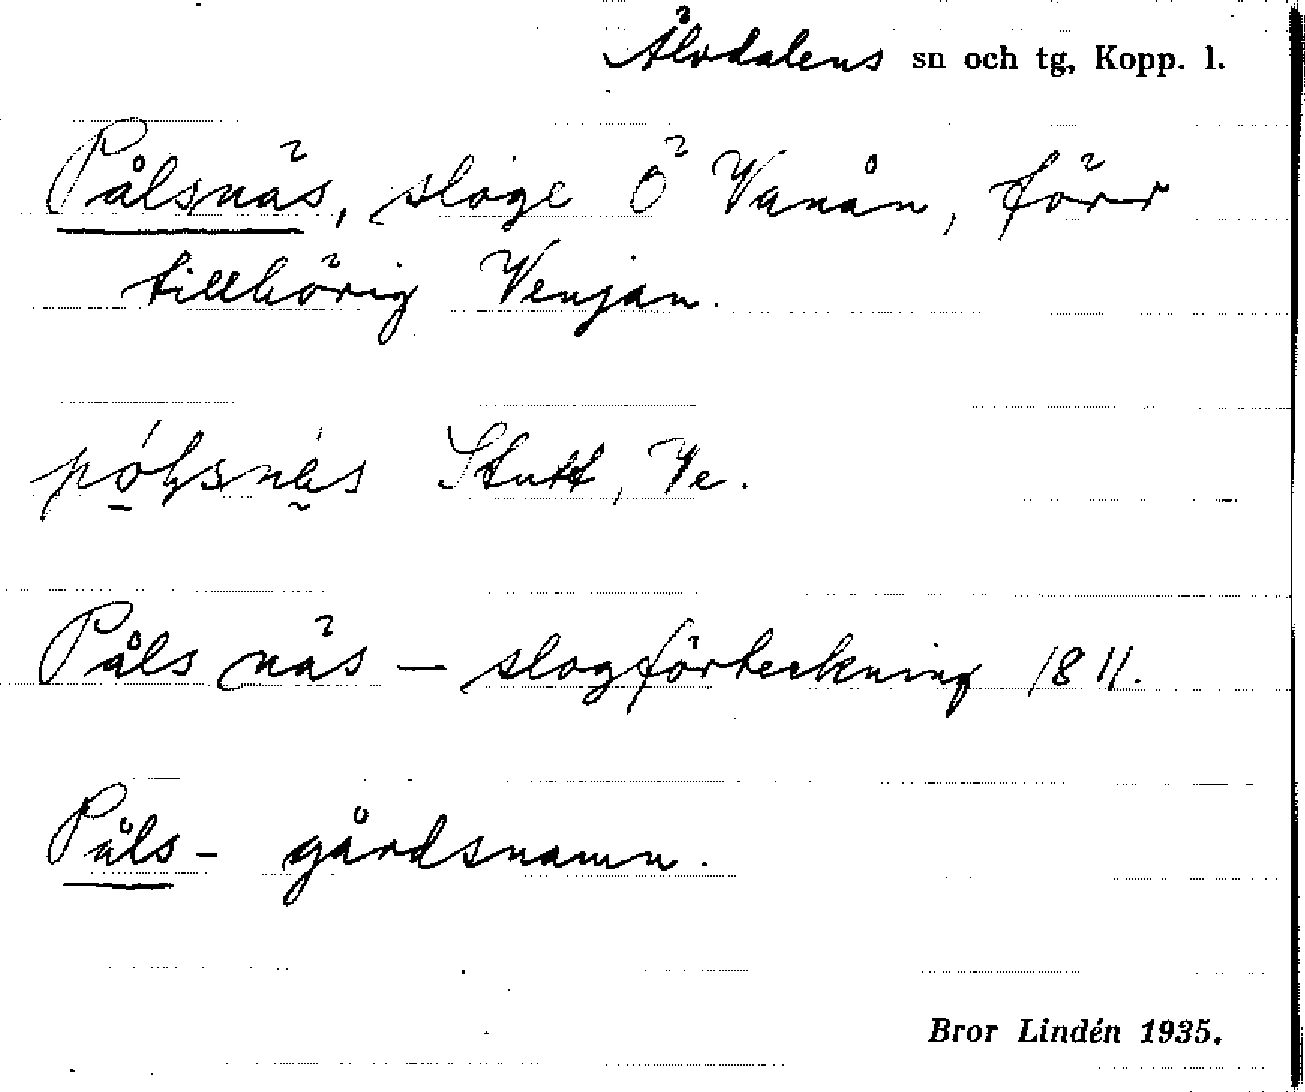 Älvdalens sn och tg, Kopp. l.
Pålsnäs, sloge Ö Vanån, förr
tillhörig Venjan.
Stutt, Ve.
Påls näs – slogförteckning 1811.
Påls- gårdsnamn.
Bror Lindén 1935.